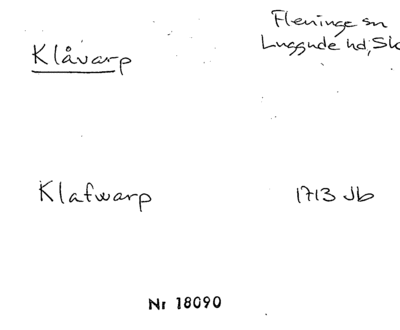 Klåvarp
Fleninge sn
Luggude hd, Sk
Klafwarp 1713 Jb
Nr 18090